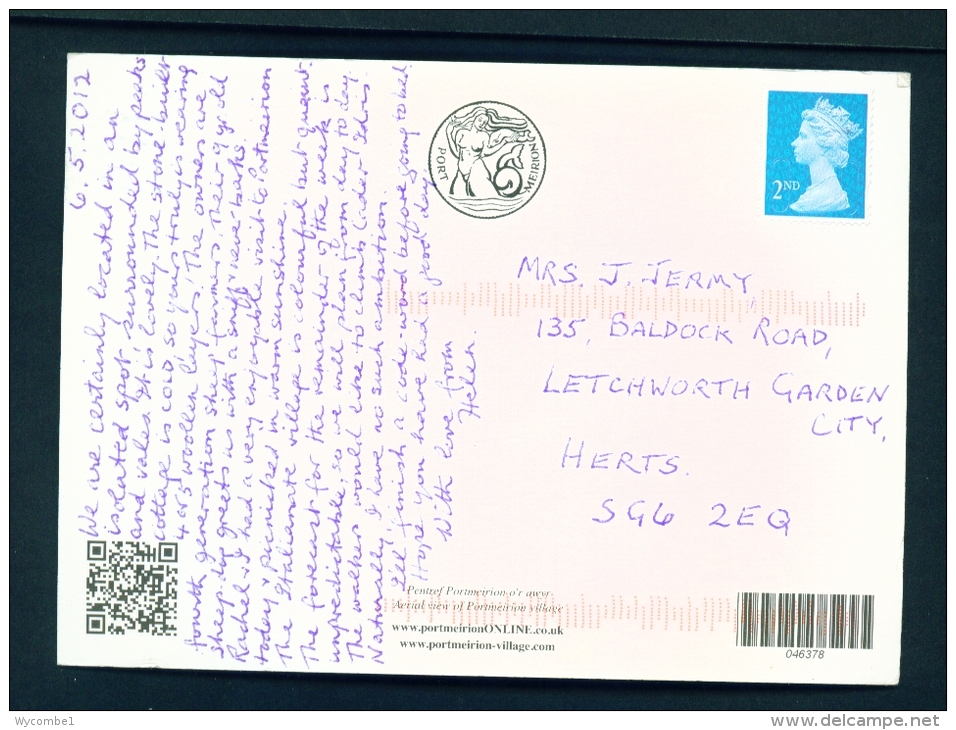 6.5.2012
We are certainly located in an
isolated spot surrounded by peaks
and vales. It is lovely. The stone-built
cottage is cold, so yours truly is wearing
4 or 5 woollen layers. The owners are
fourth generation sheep farmers. Their 9 yr old
sheep-dog greets us with a sniff never barks
Rachel & I had a very enjoyable visit to Portmeirion
today & picnicked in warm sunshine.
The Italianate village is colourful but quaint.
The forecast for the remainder of the week is
unpredictable, so we will plan from day to day.
The walkers would like to climb Cader Idris.
Naturally, I have no such ambition.
I'll finish a code-word before going to bed.
Hope you have had a good day.
With love from
Helen.
PORT MEIRION
2ND
MRS. J. JERMY
135, BALDOCK ROAD,
LETCHWORTH GARDEN
CITY,
HERTS.
SG6 2EQ
Pentref Portmeirion o'r awyr
Aerial view of Portmeirion village
www.portmeirionONLINE.co.uk
www.portmeirion-village.com
046378
Wycombe1
www.delcampe.net